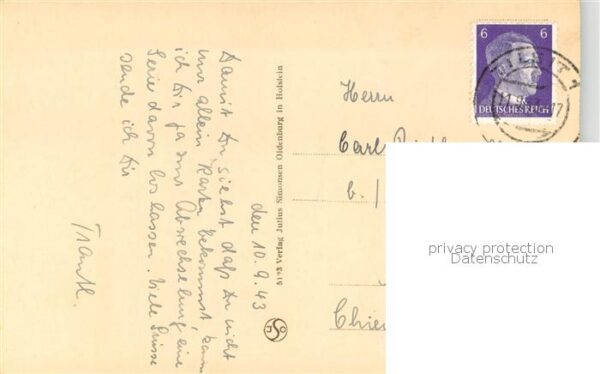 den 10.9.43
Damit Du siehst daß Du nicht
nur allein Karten bekommst, kann
ich Dir ja zur Abwechselung eine
Serie davon los lassen. Viele Grüsse
sende ich Dir
Trautl.
5193 Verlag Julius Simonsen Oldenburg in Holstein
6 6
DEUTSCHES REICH
Herrn
Carl
b. /
Chie
privacy protection
Datenschutz